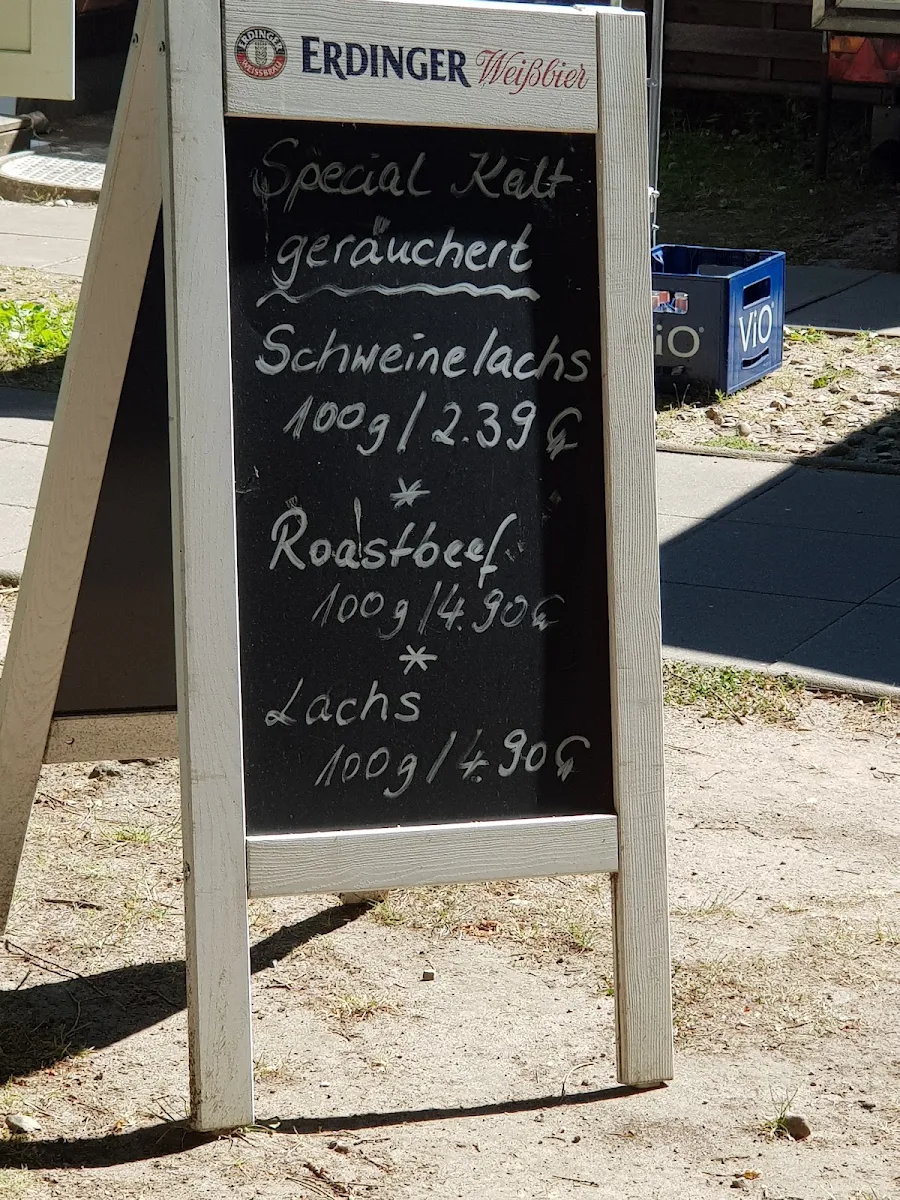 ERDINGER
WEISSBRÄU
ERDINGER Weißbier
Special Kalt
geräuchert
Schweinelachs
100g/2.39€
*
Roastbeef
100g/4.90€
*
Lachs
100g/4.90€
ViO
iO